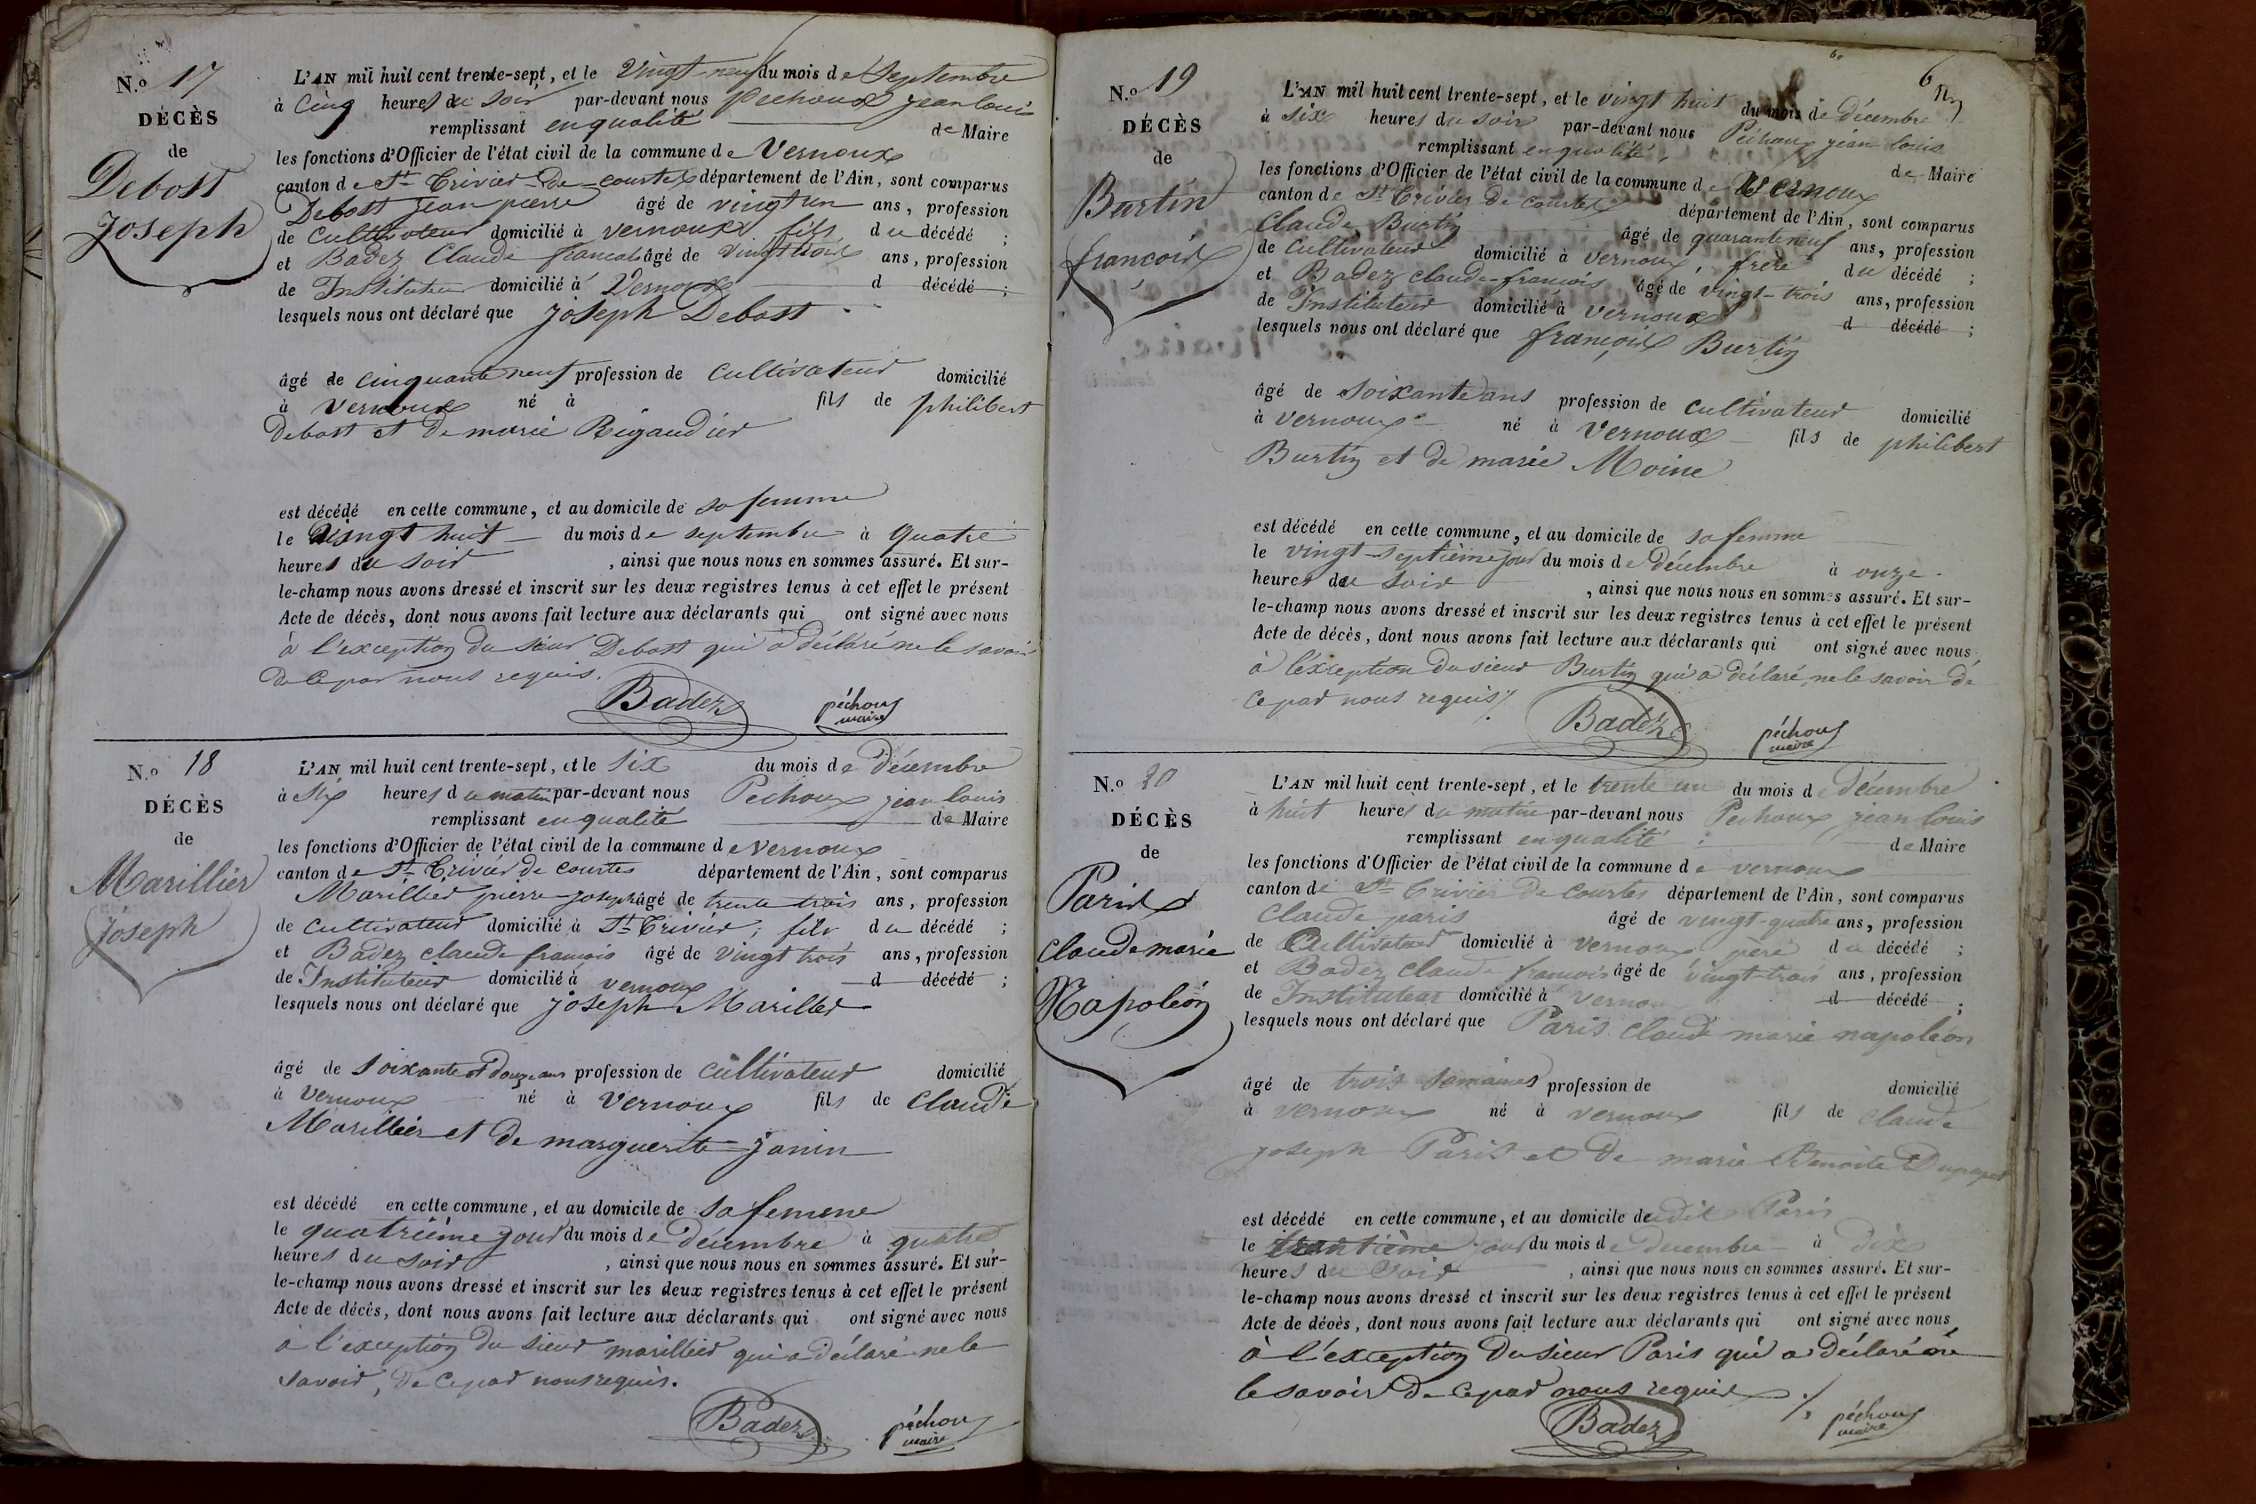 N.o 17
DÉCÈS
de
Debost
Joseph
L'AN mil huit cent trente-sept, et le vingt-neuf du mois de Septembre
à cinq heures du soir par-devant nous Pechoux jean louis
remplissant en qualité de Maire
les fonctions d'Officier de l'état civil de la commune de Vernoux
canton de St Trivier-de-courtes département de l'Ain, sont comparus
Debost Jean pierre âgé de vingt un ans, profession
de cultivateur domicilié à vernoux fils du décédé ;
et Badez Claude francois âgé de vingt trois ans, profession
de Instituteur domicilié à Vernoux d décédé ;
lesquels nous ont déclaré que joseph Debost
âgé de cinquante neuf profession de cultivateur domicilié
à vernoux né à fils de philibert
Debost et de marie Rigaudier
est décédé en cette commune, et au domicile de sa femme
le vingt huit du mois de septembre à quatre
heures du soir , ainsi que nous nous en sommes assuré. Et sur-
le-champ nous avons dressé et inscrit sur les deux registres tenus à cet effet le présent
Acte de décès, dont nous avons fait lecture aux déclarants qui ont signé avec nous
à l'exception du sieur Debost qui a déclaré ne le savoir
de ce par nous requis.
Badez péchoux
maire
N.o 18
DÉCÈS
de
Marillier
joseph
L'AN mil huit cent trente-sept, et le six du mois de décembre
à six heures du matin par-devant nous Pechoux jean louis
remplissant en qualité de Maire
les fonctions d'Officier de l'état civil de la commune de vernoux
canton de St Trivier de courtes département de l'Ain, sont comparus
Marillier pierre joseph âgé de trente trois ans, profession
de cultivateur domicilié à St Trivier, fils du décédé ;
et Badez claude françois âgé de vingt trois ans, profession
de Instituteur domicilié à vernoux d décédé ;
lesquels nous ont déclaré que joseph Marillier
âgé de soixante et douze ans profession de cultivateur domicilié
à vernoux né à vernoux fils de claude
Marillier et de marguerite janin
est décédé en cette commune, et au domicile de sa femme
le quatrième jour du mois de décembre à quatre
heures du soir , ainsi que nous nous en sommes assuré. Et sur-
le-champ nous avons dressé et inscrit sur les deux registres tenus à cet effet le présent
Acte de décès, dont nous avons fait lecture aux déclarants qui ont signé avec nous
à l'exception du sieur marillier qui a déclaré ne le
savoir, de ce par nous requis.
Badez péchoux
maire
N.o 19
DÉCÈS
de
Burtin
françois
L'AN mil huit cent trente-sept, et le vingt huit du mois de décembre
à six heures du soir par-devant nous Péchoux jean louis
remplissant en qualité de Maire
les fonctions d'Officier de l'état civil de la commune de Vernoux
canton de St Trivier de courtes département de l'Ain, sont comparus
Claude Burtin âgé de quarante neuf ans, profession
de cultivateur domicilié à vernoux, frère du décédé ;
et Badez claude-francois âgé de vingt-trois ans, profession
de Instituteur domicilié à vernoux d décédé ;
lesquels nous ont déclaré que françois Burtin
âgé de soixante ans profession de cultivateur domicilié
à vernoux né à vernoux fils de philibert
Burtin et de marie Moine
est décédé en cette commune, et au domicile de sa femme
le vingt-septième jour du mois de décembre à onze
heures du soir , ainsi que nous nous en sommes assuré. Et sur-
le-champ nous avons dressé et inscrit sur les deux registres tenus à cet effet le présent
Acte de décès, dont nous avons fait lecture aux déclarants qui ont signé avec nous
à l'éxception du sieur Burtin qui a déclaré ne le savoir de
ce par nous requis
Badez péchoux
maire
N.o 20
DÉCÈS
de
Paris
claude marie
Napoléon
L'AN mil huit cent trente-sept, et le trente un du mois de décembre
à huit heures du matin par-devant nous Péchoux jean louis
remplissant en qualité de Maire
les fonctions d'Officier de l'état civil de la commune de vernoux
canton de St Trivier de courtes département de l'Ain, sont comparus
Claude paris âgé de vingt-quatre ans, profession
de Cultivateur domicilié à vernoux père du décédé ;
et Badez claude francois âgé de vingt-trois ans, profession
de Instituteur domicilié à vernoux d décédé ;
lesquels nous ont déclaré que Paris claude marie napoléon
âgé de trois semaines profession de domicilié
à vernoux né à vernoux fils de claude
joseph Paris et de marie Benoite
est décédé en cette commune, et au domicile dudit Paris
le trentième jour du mois de décembre à dix
heures du soir , ainsi que nous nous en sommes assuré. Et sur-
le-champ nous avons dressé et inscrit sur les deux registres tenus à cet effet le présent
Acte de décès, dont nous avons fait lecture aux déclarants qui ont signé avec nous
à l'éxception du sieur Paris qui a déclaré ne
le savoir de ce par nous requis
Badez péchoux
maire